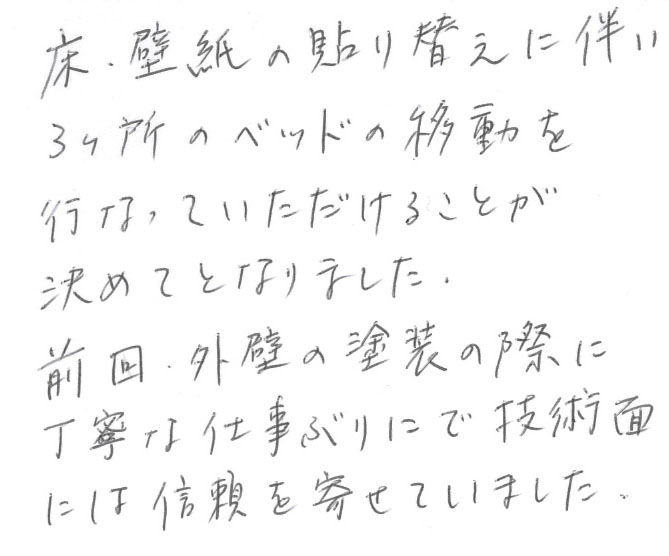 床・壁紙の貼り替えに伴い
3ヶ所のベッドの移動を
行なっていただけることが
決めてとなりました.
前回・外壁の塗装の際に
丁寧な仕事ぶりにで技術面
には信頼を寄せていました.